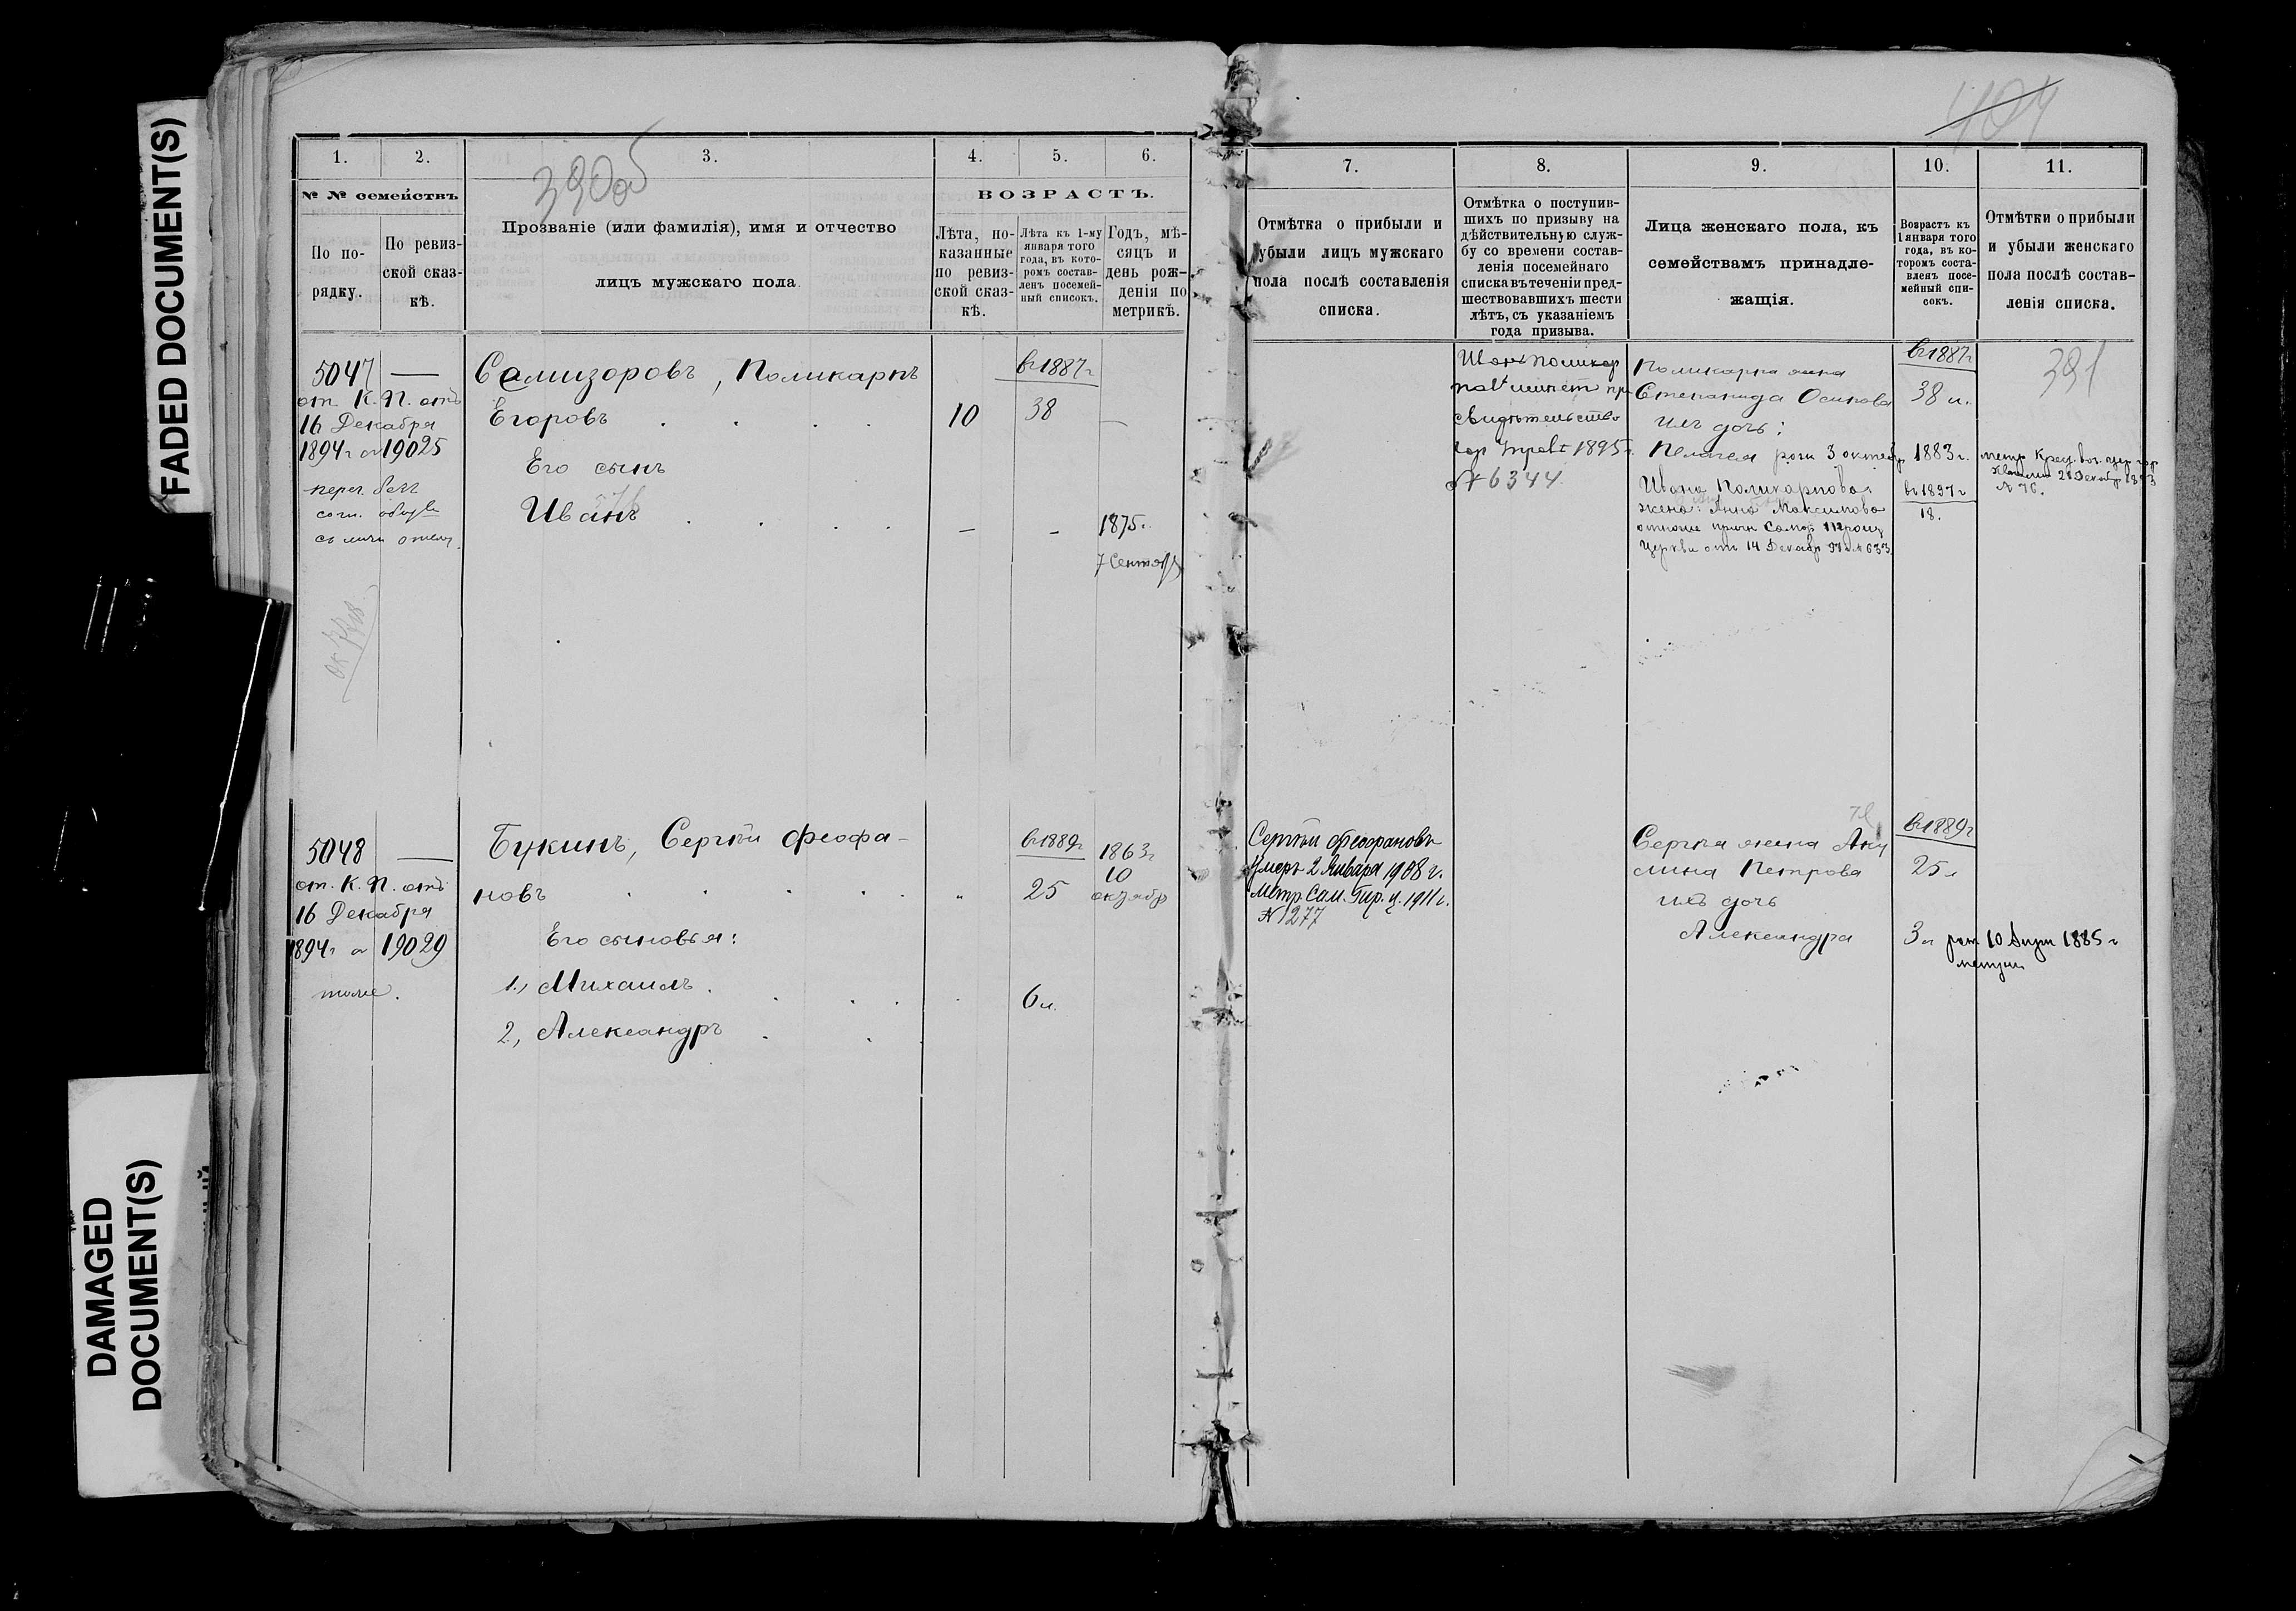 FADED DOCUMENT(S)
DAMAGED
DOCUMENT(S)
390об
1.
2.
3.
4.
5.
6.
№ № семействъ
По по-
рядку.
По ревиз-
ской сказ-
кѣ.
Прозваніе (или фамилія), имя и отчество
лицъ мужскаго пола.
ВОЗРАСТЪ.
Лѣта, по-
казанные
по ревиз-
ской сказ-
кѣ.
Лѣта къ 1-му
января того
года, въ кото-
ромъ состав-
ленъ посемей-
ный списокъ.
Годъ, мѣ-
сяцъ и
день рож-
денія по
метрикѣ.
5047 —
от К. П. отъ
16 Декабря
1894 г 19025
Поликарпъ
Егоровъ
10
в 1887 г
38
Его сынъ
Иванъ
1875 г.
7 Сентяб
5048 —
от. К. П. отъ
16 Декабря
1894 г 19029
тоже.
Букинъ, Сергѣй Феофа-
новъ
в 1889 г
25
1863 г
10
октября
Его сыновья:
1, Михаилъ.
6 л.
2, Александръ
7.
8.
9.
10.
11.
Отмѣтка о прибыли и
убыли лицъ мужскаго
пола послѣ составленія
списка.
Отмѣтка о поступив-
шихъ по призыву на
дѣйствительную служ-
бу со времени состав-
ленія посемейнаго
списка въ теченіи пред-
шествовавшихъ шести
лѣтъ, съ указаніемъ
года призыва.
Лица женскаго пола, къ
семействамъ принадле-
жащія.
Возрастъ къ
1 января того
года, въ ко-
торомъ соста-
вленъ посе-
мейный спи-
сокъ.
Отмѣтки о прибыли
и убыли женскаго
пола послѣ состав-
ленія списка.
391
Иван Поликар
свидетельство
1895 г.
№ 6344
Поликарпа жена
Степанида Осипова
ихъ дочь:
3 октября
Ивана Поликарпова
жена: Анна Максимова
Церкви от 14 Декабр
в 1887 г
38 л.
1883 г.
в 1897 г
18.
№ 76.
Сергѣй Феофановъ
умеръ 2 Января 1908 г.
Метр. Сам. ц. 1911 г.
№ 1277
Сергѣя жена Аку
лина Петрова
ихъ дочь
Александра
в 1889 г
25 л
3 л
10 1885 г